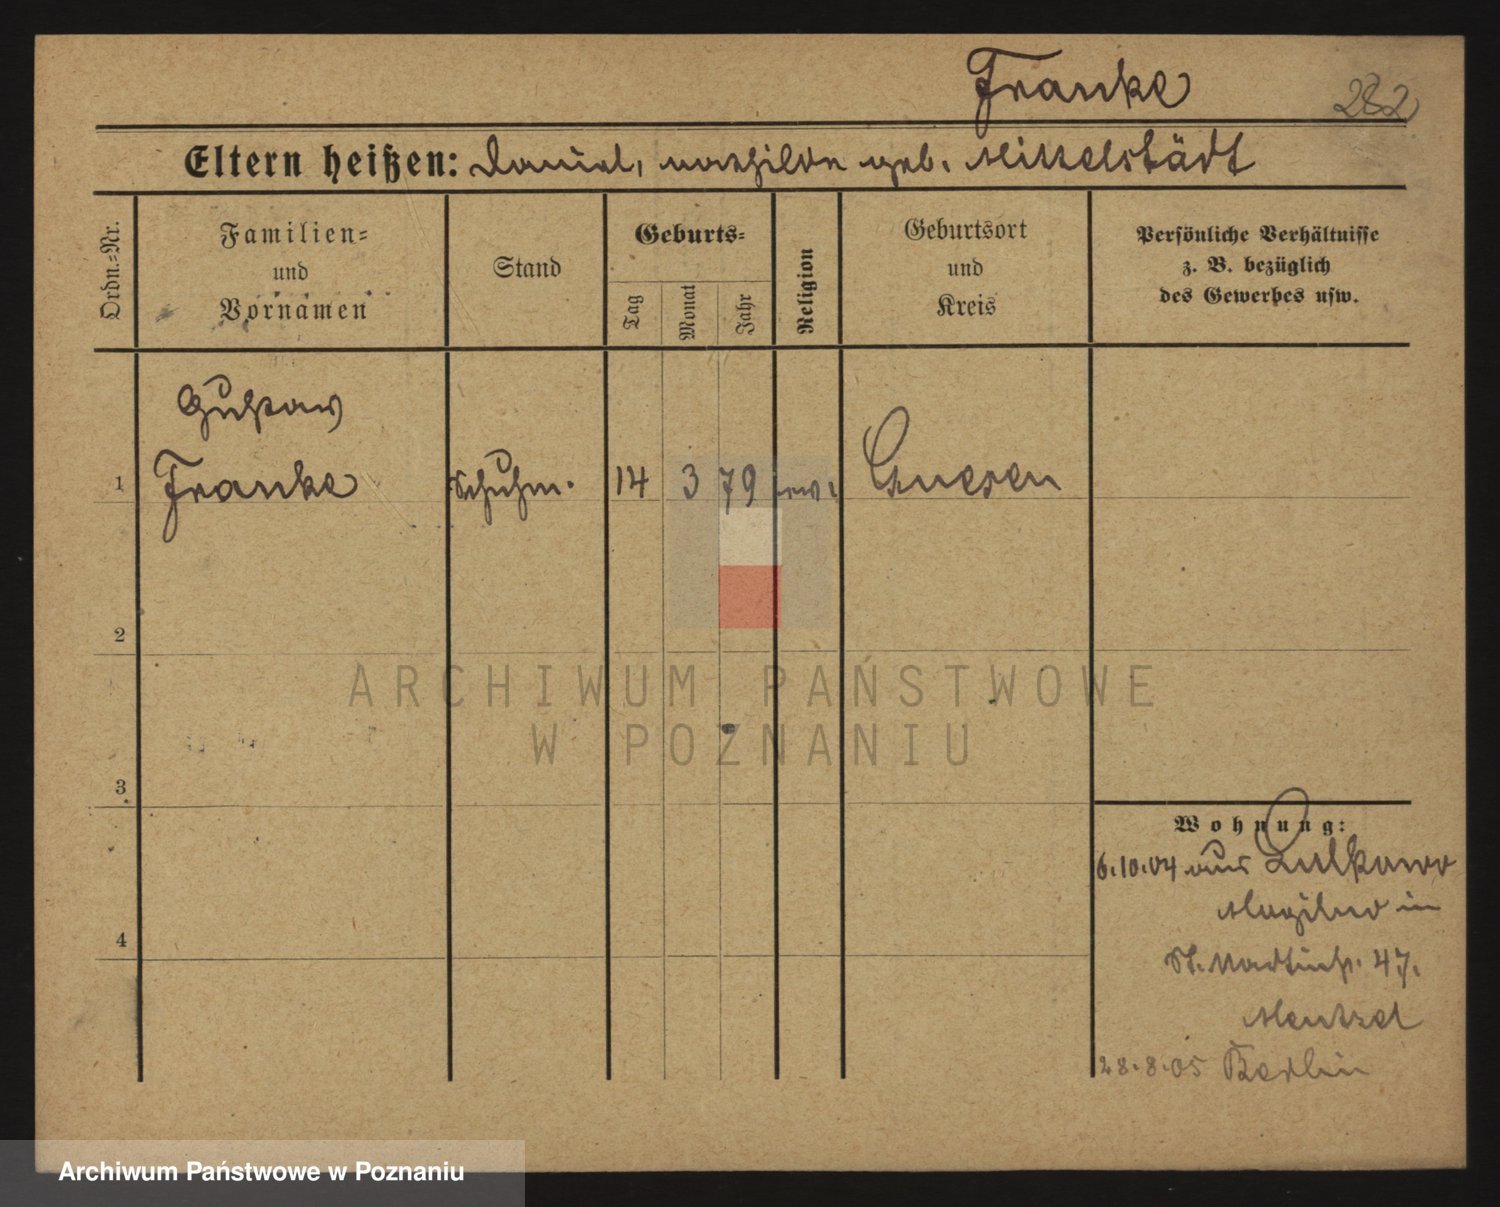 Franke
282
Eltern heißen: Daniel, Mathilde geb. Mittelstädt
Ordn.-Nr.
Familien-
und
Vornamen
Stand
Geburts-
Tag
Monat
Jahr
Religion
Geburtsort
und
Kreis
Persönliche Verhältnisse
z. B. bezüglich
des Gewerbes usw.
Gustav
1 Franke Schuhm. 14 3 79 ev. Gnesen
2
3
4
Wohnung:
6.10.04 aus
Mogilno in
St. Martinst. 47.
Mentzel
28.8.05 Berlin
ARCHIWUM PAŃSTWOWE
W POZNANIU
Archiwum Państwowe w Poznaniu